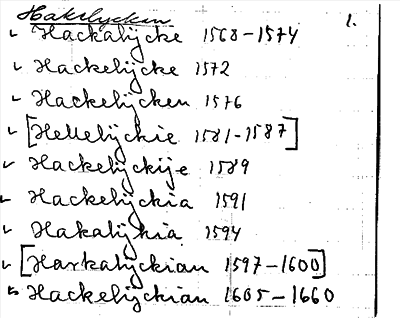 Hakalycken 1.
Hackalÿcke 1568-1574
Hackelÿcke 1572
Hackelÿcken 1576
[Hellelÿckie 1581-1587]
Hackelÿckije 1589
Hackelÿckia 1591
Hakalÿkia 1594
[Harkalÿckian 1597-1600]
Hackelÿckian 1605-1660